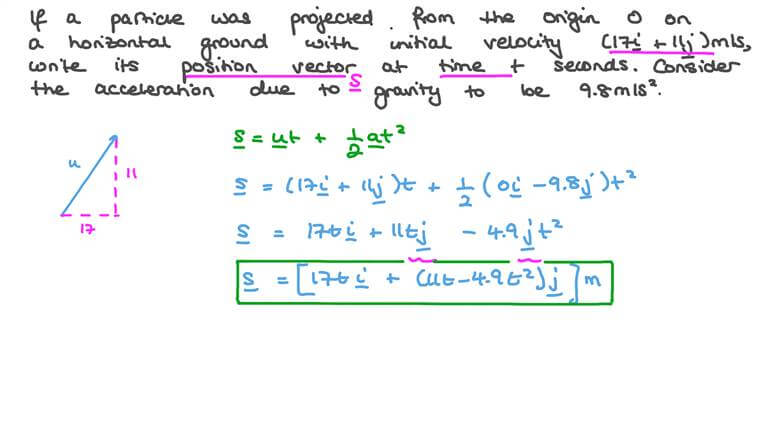 If a particle was projected from the origin O on
a horizontal ground with initial velocity (17i + 11j) m/s,
write its position vector at time t seconds. Consider
s
the acceleration due to gravity to be 9.8m/s².
s = ut + 1/2 at²
u
11
17
s = (17i + 11j)t + 1/2 (0i - 9.8j)t²
s = 17ti + 11tj - 4.9jt²
s = [17ti + (11t - 4.9t²)j] m